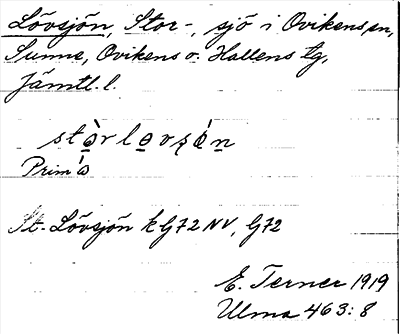 Lövsjön, Stor-, sjö i Ovikens sn,
Sunne, Ovikens o. Hallens tg,
Jämtl. l.
Prim
St. Lövsjön k G72 NV, G72
E. Terner 1919
Ulma 463:8